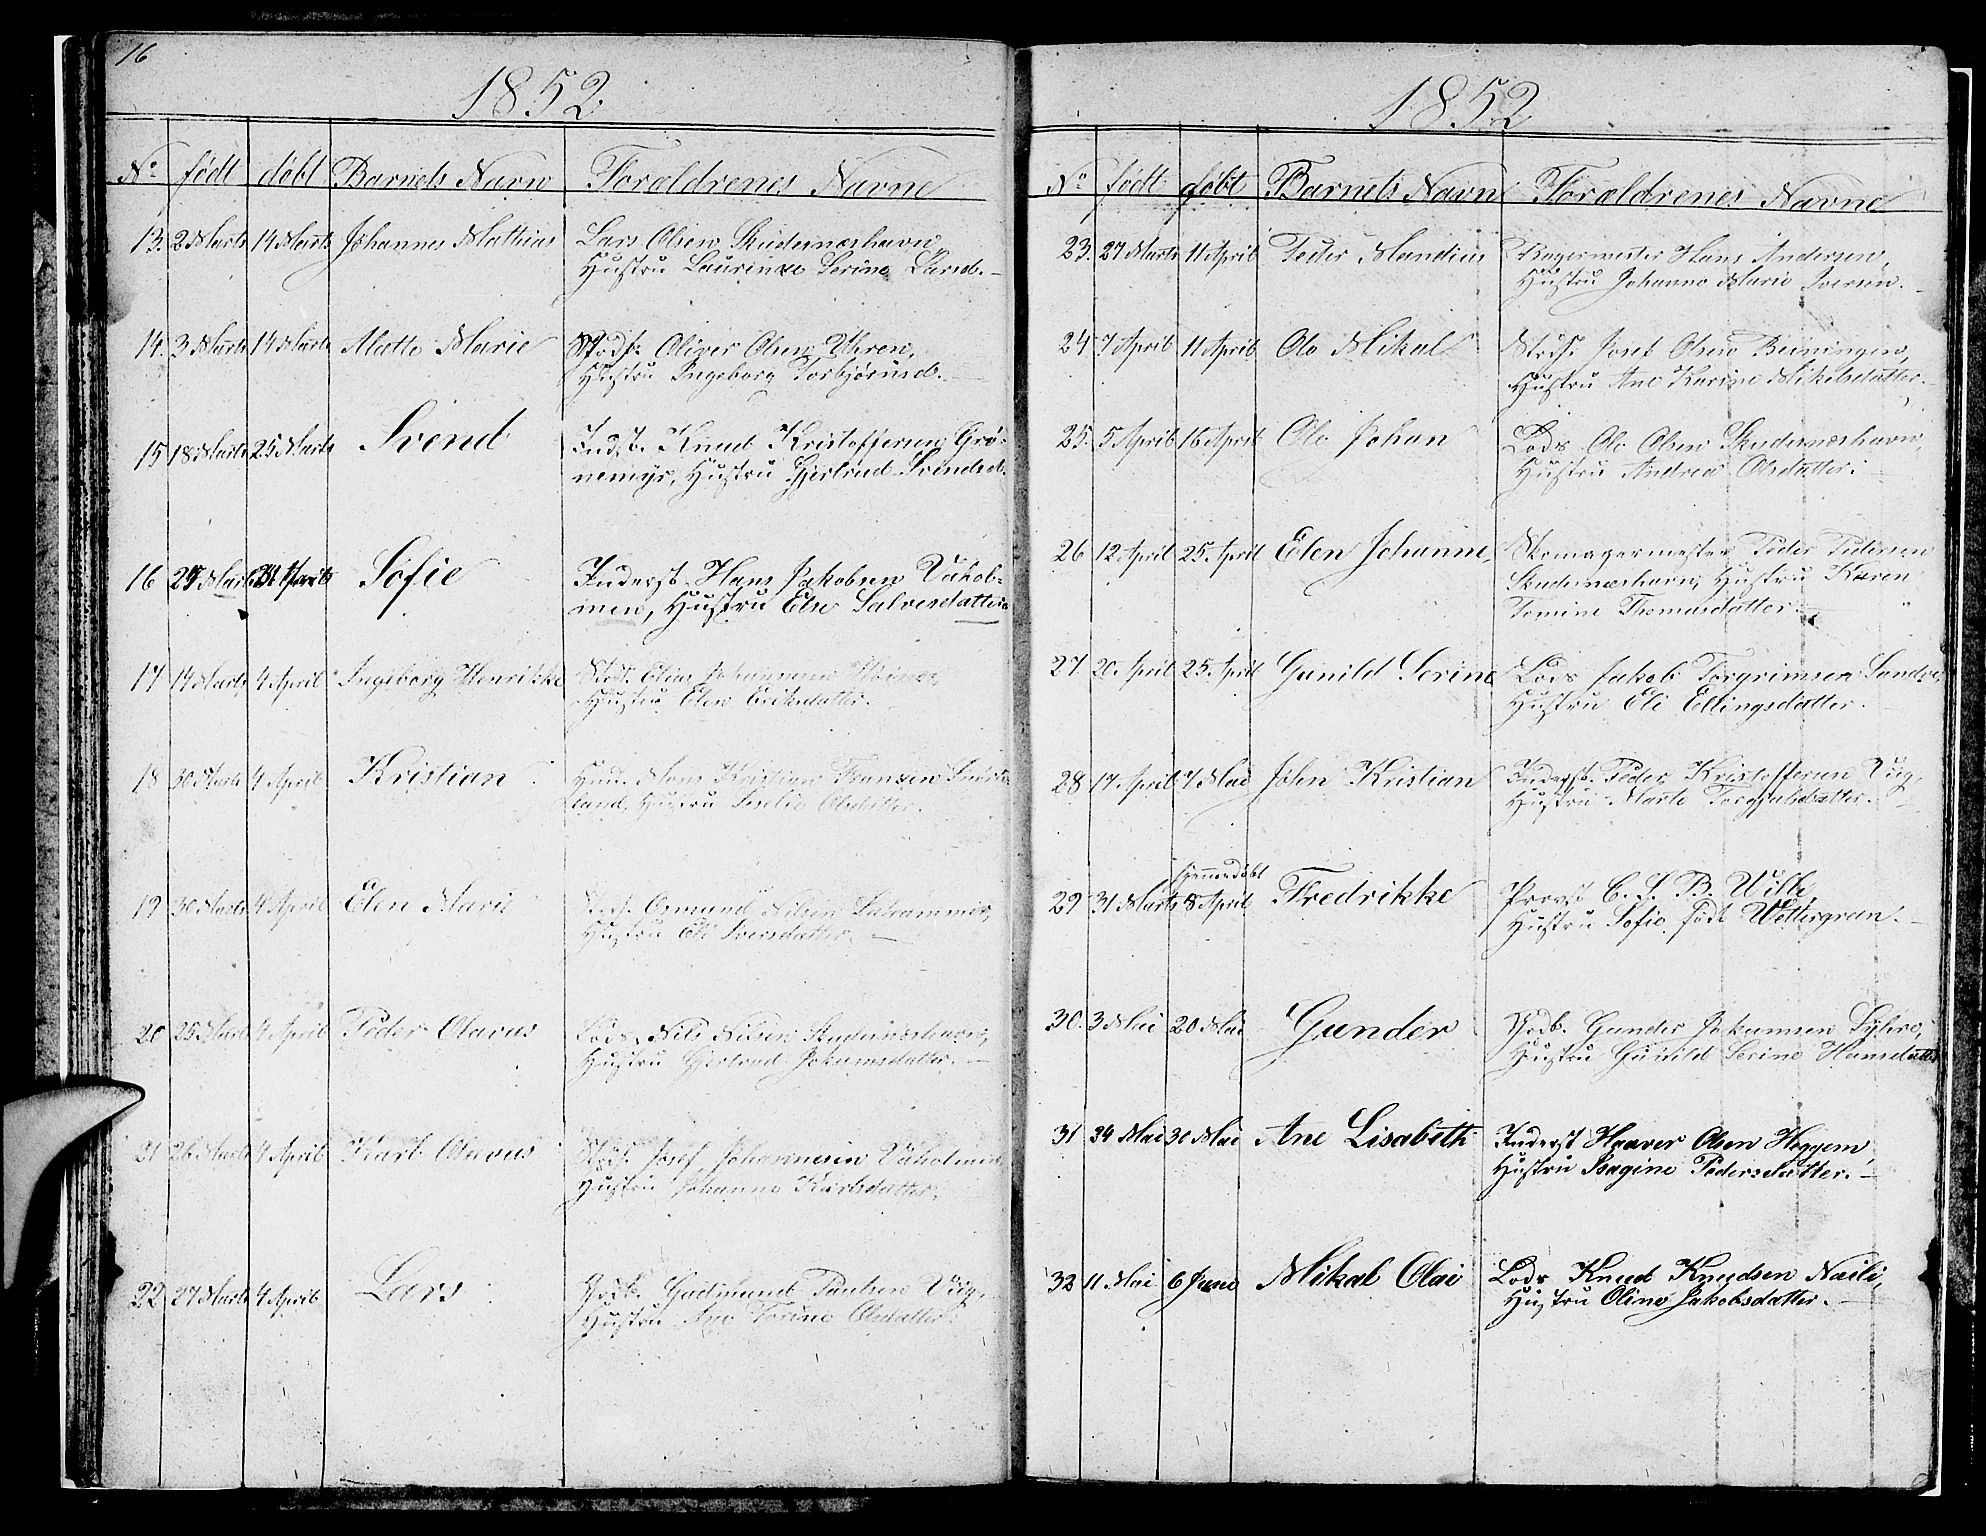 16
1852
No født døbt Barnets Navn Forældrenes Navne
13. 2 Marts 14 Marts Johannes Mathias Lars Olsen Skudesnæshavn,
Hustru Laurenze Serine Larsd. -
14. 3 Marts 14 Marts Mette Marie Strds. Oliver Olsen Uhren,
Hustru Ingeborg Torbjørnsd. -
15 18 Marts 25 Marts Svend Ind. T. Knud Kristoffersen Grø-
nemyr, Hustru Gjertrud Svendsd.
16 April Sofie Inderst Hans Jakobsen Vakol-
men, Hustru Else Salvesdatter
17 14 Marts 4 April Ingeborg Henrikke Strds. Elias Johannesen
Hustru Elen Eriksdatter.
18 30 Marts 4 April Kristian Hans Kristian Fransen
land, Hustru Serine Olsdatter.
19 30 Marts 4 April Elen Marie Osmund Nilsen Sahammer,
Hustru Eli Iversdatter. -
20 25 Marts 4 April Peder Olavus Lods Nils Nilsen Skudesnæshavn,
Hustru Gjertrud Johannsdatter. -
21 26 Marts 4 April Karl Olavus Strds. Josef Johannesen Vakolmen,
Hustru Johanne Karlsdatter.
22 27 Marts 4 April Lars Gudmund Paulsen Viig,
Hustru Ane Torine Olsdatter.
1852
No født døbt Barnets Navn Forældrenes Navne
23. 27 Marts 11 April Peder Mandius Bagermester Hans Andersen,
Hustru Johanne Marie Iversen. -
24 7 April 11 April Ole Mikal Strds. Josef Olsen Beiningen,
Hustru Ane Karine Mikelsdatter. -
25. 5 April 16 April Ole Johan Lods Ole Olsen Skudesnæshavn,
Hustru Andrea Olsdatter. -
26 12 April 25 April Elen Johanne, Skomagermester Peder Pedersen
Skudesnæshavn, Hustru Karen
Tomine Thomasdatter. -
27 20 April 25 April Gunild Serine Lods Jakob Torgrimsen Sandve,
Hustru Eli Ellingsdatter.
28 17 April 7 Mai John Kristian Inderst. Peder Kristoffersen Viig,
Hustru Marte Torgjulsdatter. -
hjemmedøbt
29 31 Marts 8 April Fredrikke Provst C. S. B. Wille,
Hustru Sofie født Wettergreen. -
30. 3 Mai 20 Mai Gunder Gunder Johannsen Syhre,
Hustru Gunild Serine Hansdatter
31 24 Mai 30 Mai Ane Lisabeth Inderst Haaver Olsen Heggem,
Hustru Aagine Pedersdatter. -
32 11 Mai 6 June Mikal Olai Lods Knud Knudsen Naili,
Hustru Oline Jakobsdatter. -